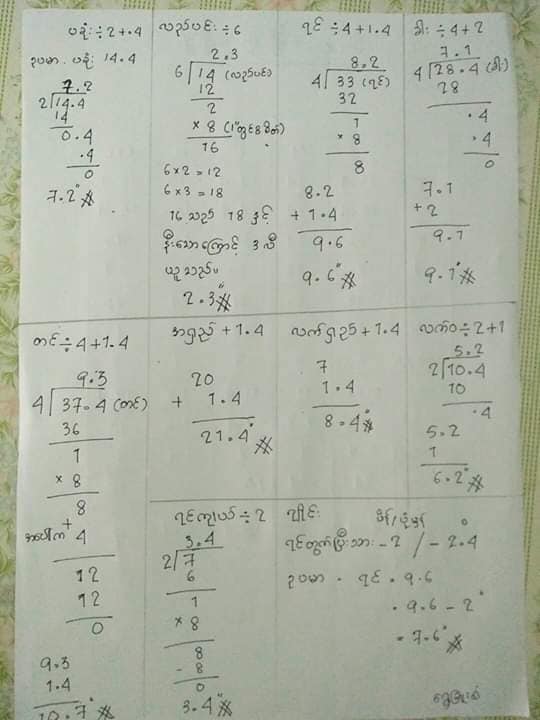 ပခုံး ÷ 2 + .4
ဥပမာ . ပခုံး 14.4
7.2
2 14.4
14
0.4
.4
0
7.2"
လည်ပင်း ÷ 6
2.3
6 14 (လည်ပင်း)
12
2
× 8 (1"တွင် 8 စိတ်)
16
6×2 = 12
6×3 = 18
16 သည် 18 နှင့်
နီးသောကြောင့် 3 လီ
ယူသည်။
2.3
ရင် ÷ 4 + 1.4
8.2
4 33 (ရင်)
32
1
× 8
8
8.2
+ 1.4
9.6
9.6"
ခါး ÷ 4 + 2
7.1
4 28.4 (ခါး)
28
.4
.4
0
7.1
+ 2
9.1
9.1"
တင် ÷ 4 + 1.4
9.3
4 37.4 (တင်)
36
1
× 8
8
အပေါ်က + 4
12
12
0
9.3
1.4
10.7"
အရှည် + 1.4
20
+ 1.4
21.4"
လက်ရှည် + 1.4
7
1.4
8.4"
လက်ဝ ÷ 2 + 1
5.2
2 10.4
10
.4
5.2
1
6.2"
ရင်ကျယ် ÷ 2
3.4
2 7
6
1
× 8
8
- 8
0
3.4"
ချိုင်း
ရင်တွက်ပြီးသား - 2 / - 2.4
ဥပမာ . ရင် = 9.6
= 9.6 - 2"
= 7.6"